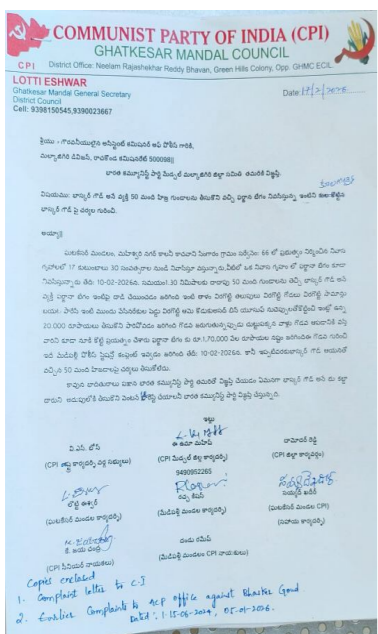 COMMUNIST PARTY OF INDIA (CPI)
GHATKESAR MANDAL COUNCIL
CPI District Office: Neelam Rajashekhar Reddy Bhavan, Green Hills Colony, Opp. GHMC ECIL.
LOTTI ESHWAR
Ghatkesar Mandal General Secretary
District Council
Cell: 9398150545,9390023667
Date: 17/2/2026
శ్రీయుత గౌరవనీయులైన అసిస్టెంట్ కమిషనర్ ఆఫ్ పోలీస్ గారికి,
మల్కాజిగిరి డివిజన్, రాచకొండ కమిషనరేట్ 500098||
భారత కమ్యూనిస్ట్ పార్టీ మేడ్చల్ మల్కాజిగిరి జిల్లా సమితి తమరికి విజ్ఞప్తి.
విషయము: భాస్కర్ గౌడ్ అనే వ్యక్తి 50 మంది హిజ్రా గుండాలను తీసుకొని వచ్చి ఫర్జానా బేగం నివసిస్తున్న ఇంటిని
భాస్కర్ గౌడ్ పై చర్యల గురించి.
అయ్యా||
ఘటకేసర్ మండలం, మహేశ్వరి నగర్ కాలనీ కాచవాని సింగారం గ్రామం సర్వేనెం. 66 లో ప్రభుత్వం నిర్మించిన నివాస
గృహాలలో 17 కుటుంబాలు 30 సంవత్సరాల నుండి నివాసిస్తూ వస్తున్నారు. వీటిలో ఒక నివాస గృహం లో ఫర్జానా బేగం కూడా
నివసిస్తున్నారు తేది: 10-02-2026న. సమయం1.30 నిమిషాలకు దాదాపు 50 మంది గుండాలను తెచ్చి భాస్కర్ గౌడ్ అనే
వ్యక్తి ఫర్జానా బేగం ఇంటిపై దాడి చేయించడం జరిగింది ఇంటి తాళం విరగొట్టి తలుపులు విరగొట్టి గోడలు విరగొట్టి సామాన్లు
20,000 రూపాయలు తీసుకొని పారిపోవడం జరిగింది గొడవ జరుగుతున్నప్పుడు చుట్టుపక్కన వాళ్లు గొడవ ఆపడానికి వస్తే
వారిని కూడా నూకి కొట్టే ప్రయత్నం చేశారు ఫర్జానా బేగం కు రూ.1,70,000 వేల రూపాయల నష్టం జరిగింది గొడవ గురించి
ఇది మేడిపల్లి పోలీస్ స్టేషన్లో కంప్లైంట్ ఇవ్వడం జరిగింది తేది: 10-02-2026న. కానీ ఇప్పటివరకు భాస్కర్ గౌడ్ ఆయనతో
వచ్చిన 50 మంది హిజడాలపై చర్యలు తీసుకోలేదు.
కావున బాధితురాలు పక్షాన భారత కమ్యూనిస్ట్ పార్టీ తమరితో విజ్ఞప్తి చేయడం ఏమనగా భాస్కర్ గౌడ్ అనే భూ కబ్జా
దారుని అదుపులోకి తీసుకొని వెంటనే చేయాలని భారత కమ్యూనిస్ట్ పార్టీ విజ్ఞప్తి చేస్తున్నది.
ఇట్లు
వి.ఎస్. బోస్
ఈ ఉమా మహేష్
దామోదర్ రెడ్డి
(CPI రాష్ట్ర కార్యవర్గ సభ్యులు)
(CPI మేడ్చల్ జిల్లా కార్యదర్శి)
(CPI జిల్లా కార్యవర్గం)
9490952265
లొట్టి ఈశ్వర్
రచ్చ కిషన్
సయ్యద్ ఖదీర్
(ఘటకేసర్ మండల కార్యదర్శి)
(మేడిపల్లి మండల కార్యదర్శి)
(ఘటకేసర్ మండల CPI)
(సహాయ కార్యదర్శి)
కె. జయ చంద్ర
దండు రమేష్
(CPI సీనియర్ నాయకులు)
(మేడిపల్లి మండలం CPI నాయకులు)
Copies enclosed
1. Complaint letter to C.I
2. Earlier Complaints to ACP office against Bhasker Goud
Dated: 1-15-06-2024, 05-01-2026.